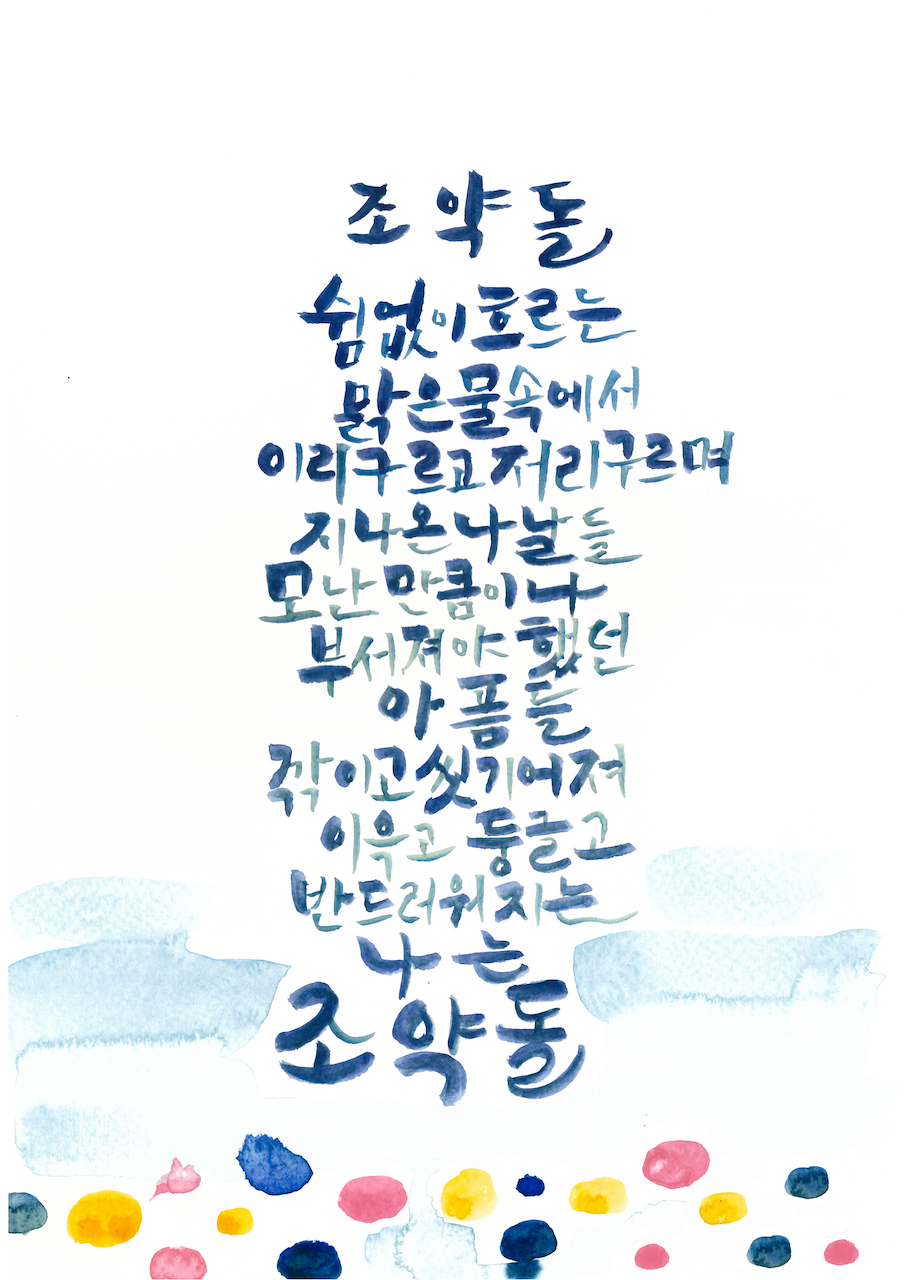 조약돌
쉼없이흐르는
맑은물속에서
이리구르고저리구르며
지나온나날들
모난만큼이나
부서져야했던
아픔들
깎이고씻기어져
이윽고둥글고
반드러워지는
나는
조약돌